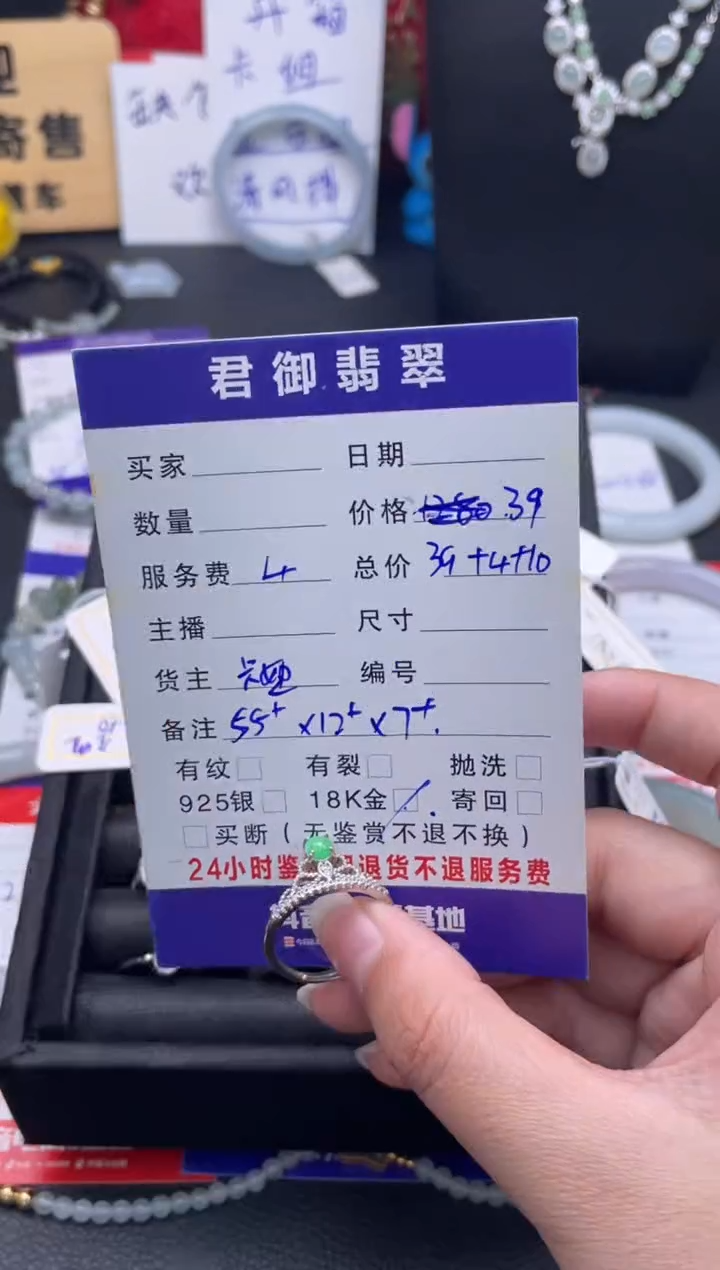 寄售
缺个
卡姐
欢
君御翡翠
买家 日期
数量 价格 39
服务费 4 总价 39+4+10
主播 尺寸
货主 卡姐 编号
备注 55⁺×12⁺×7⁺.
有纹 有裂 抛洗
925银 18K金 寄回
买断(无鉴赏不退不换)
24小时鉴 退货不退服务费
基地